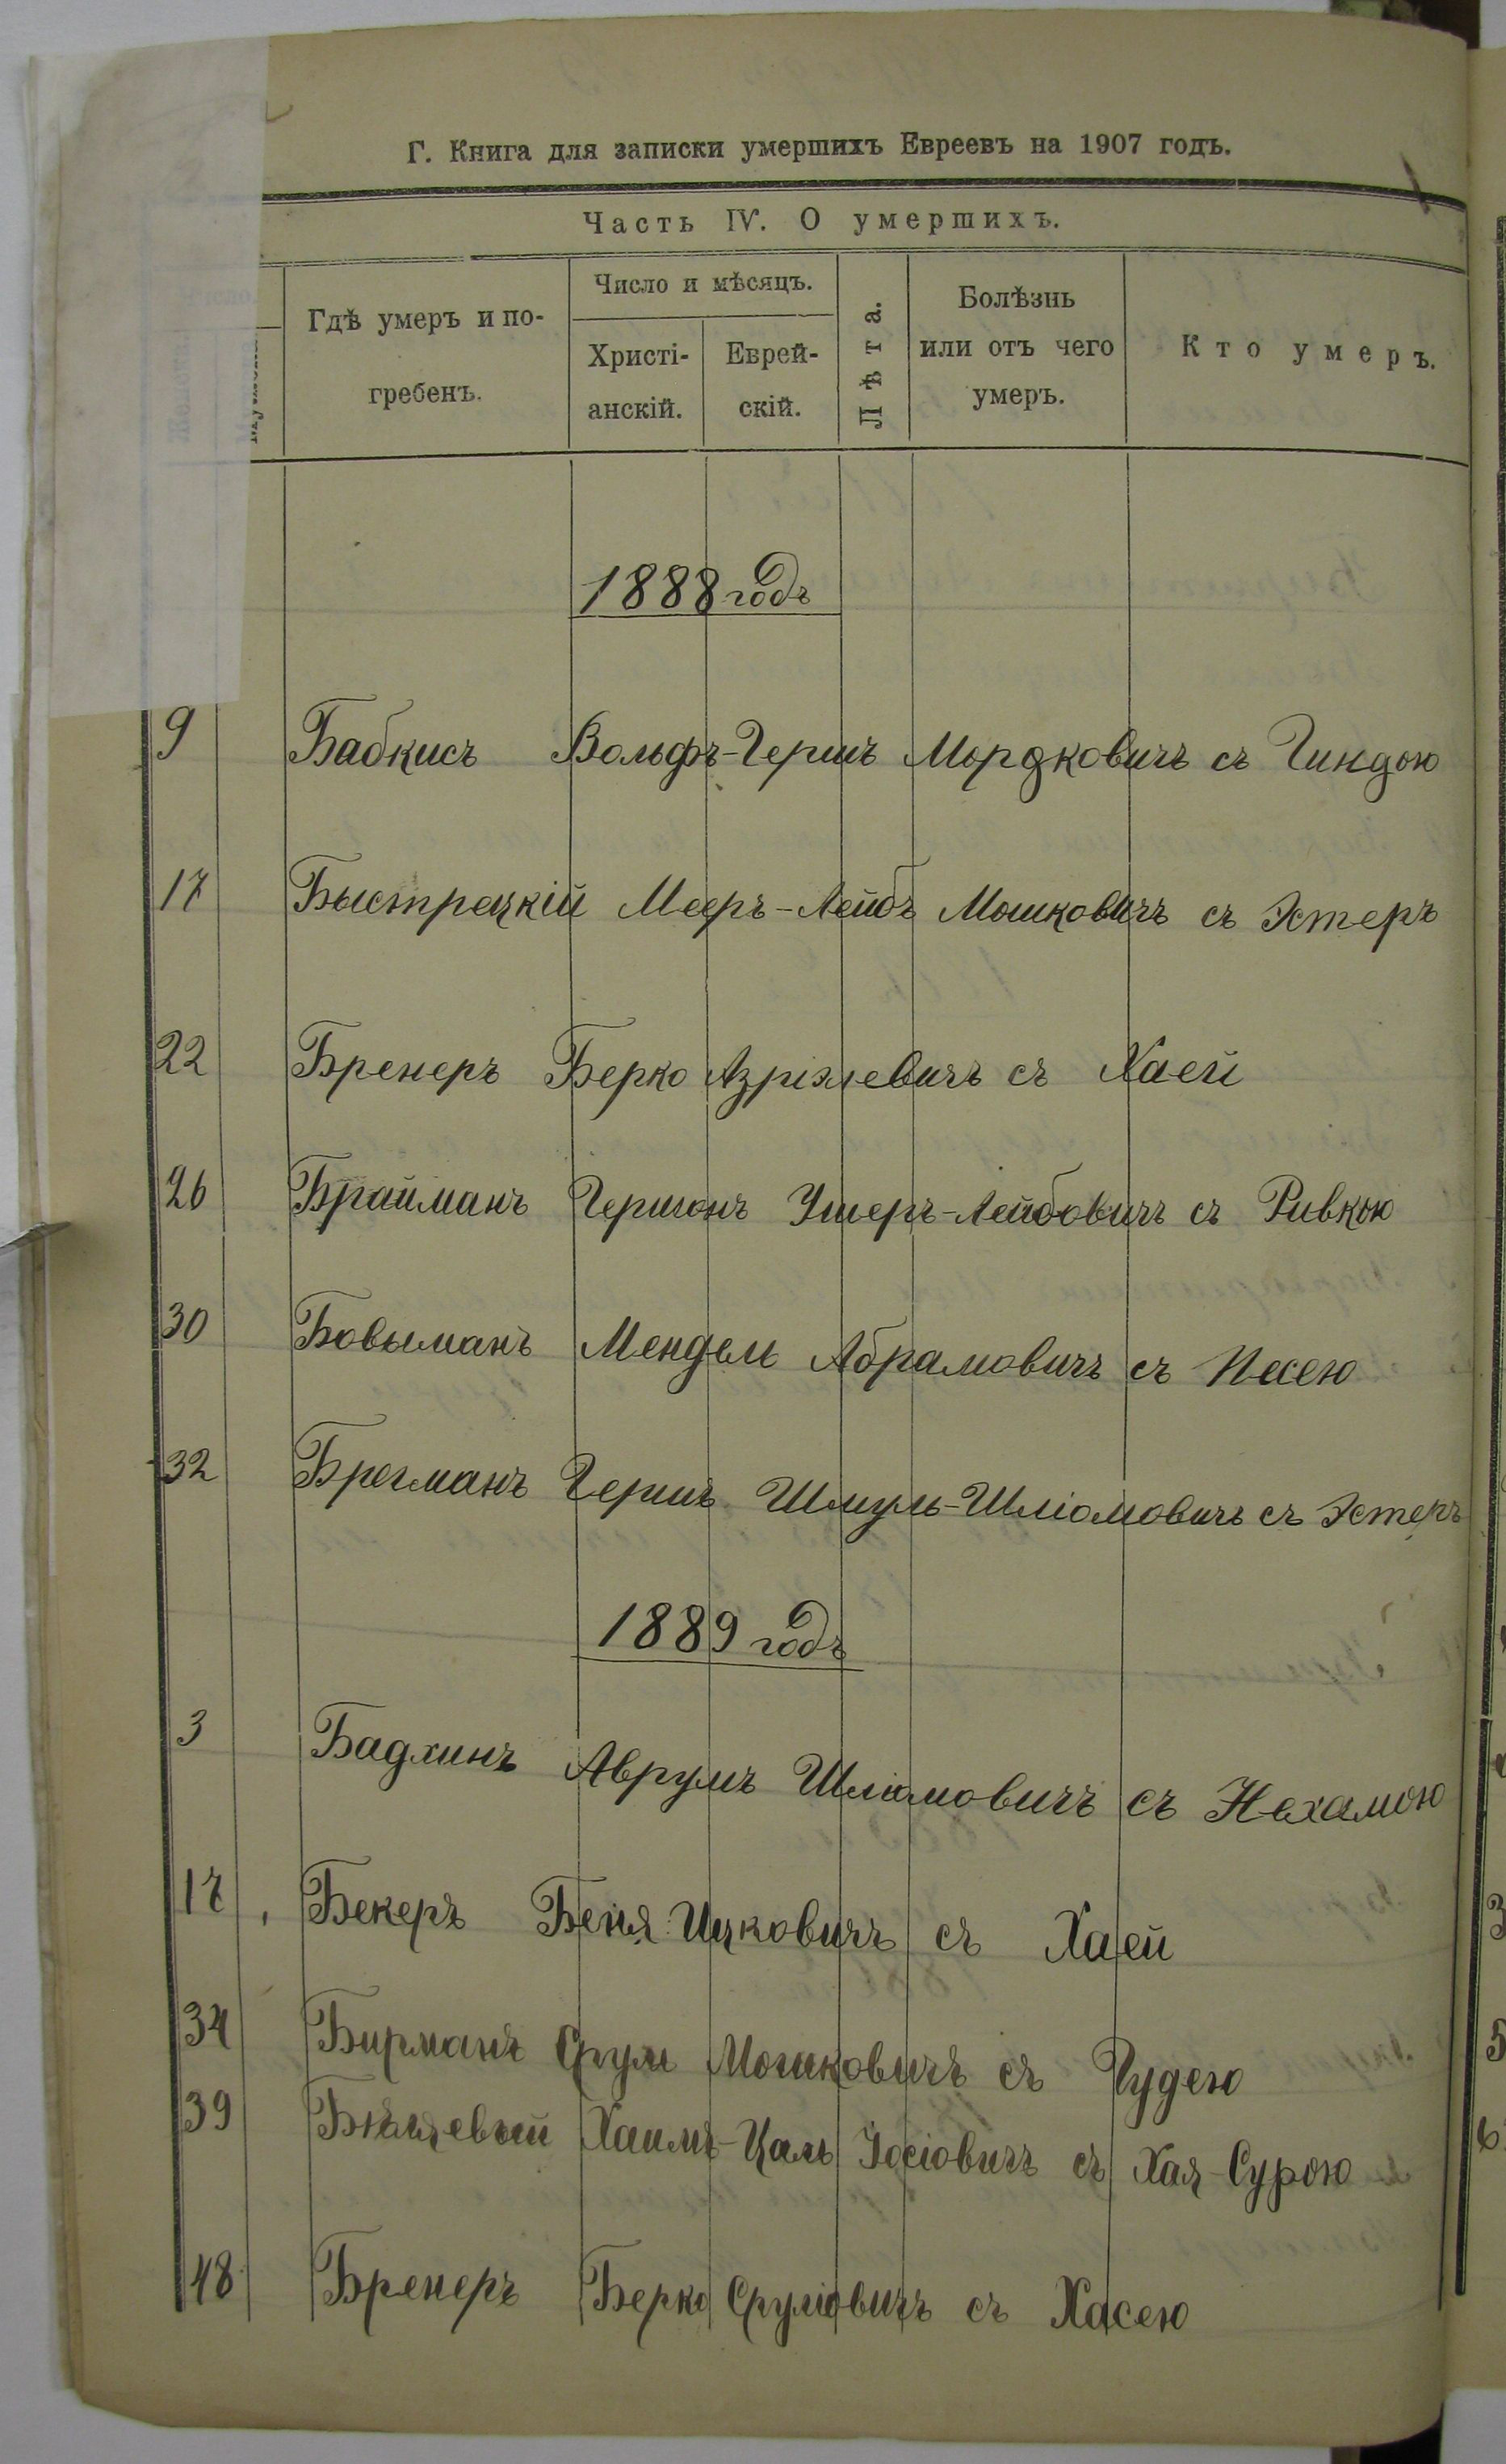 Г. Книга для записки умершихъ Евреевъ на 1907 годъ.
Часть IV. О умершихъ.
Гдѣ умеръ и по-
гребенъ.
Число и мѣсяцъ.
Христі-
анскій.
Еврей-
скій.
Лѣта.
Болѣзнь
или отъ чего
умеръ.
Кто умеръ.
1888 годъ
9 Бабкисъ Вольфъ-Гершъ Мордковичъ съ Гиндою
17 Быстрецкій Мееръ-Лейбъ Мошковичъ съ Эстеръ
22 Бренеръ Берко Азріэлевичъ съ Хаей
26 Брайманъ Гершонъ Ушеръ-Лейбовичъ съ Ривкою
30 Бовыманъ Мендель Абрамовичъ съ Песею
32 Брегманъ Гершъ Шмуль-Шліомовичъ съ Эстеръ
1889 годъ
3 Бадхинъ Аврумъ Шліомовичъ съ Нехамою
17 Бекеръ Беня Ицковичъ съ Хаей
34 Бирманъ Срул Мошковичъ съ Гудею
39 Хаимъ-Цаль Іосіовичъ съ Хая-Сурою
48 Бренеръ Берко Сруліовичъ съ Хасею